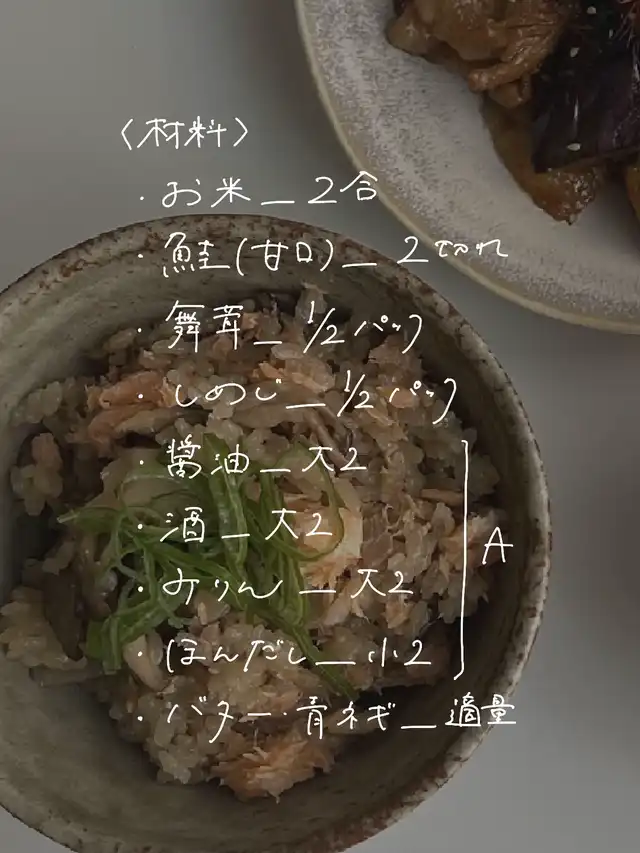 〈材料〉
・お米_2合
・鮭(甘口)_2切れ
・舞茸_1/2パック
・しめじ_1/2パック
・醤油_大2
・酒_大2
・みりん_大2
・ほんだし_小2
A
・バター・青ネギ_適量